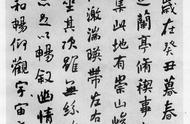 歲在癸丑暮春
之蘭亭脩禊事
此地有崇山
激湍暎帶左右
坐其次雖無絲
足以暢叙幽情
和暢仰觀宇宙